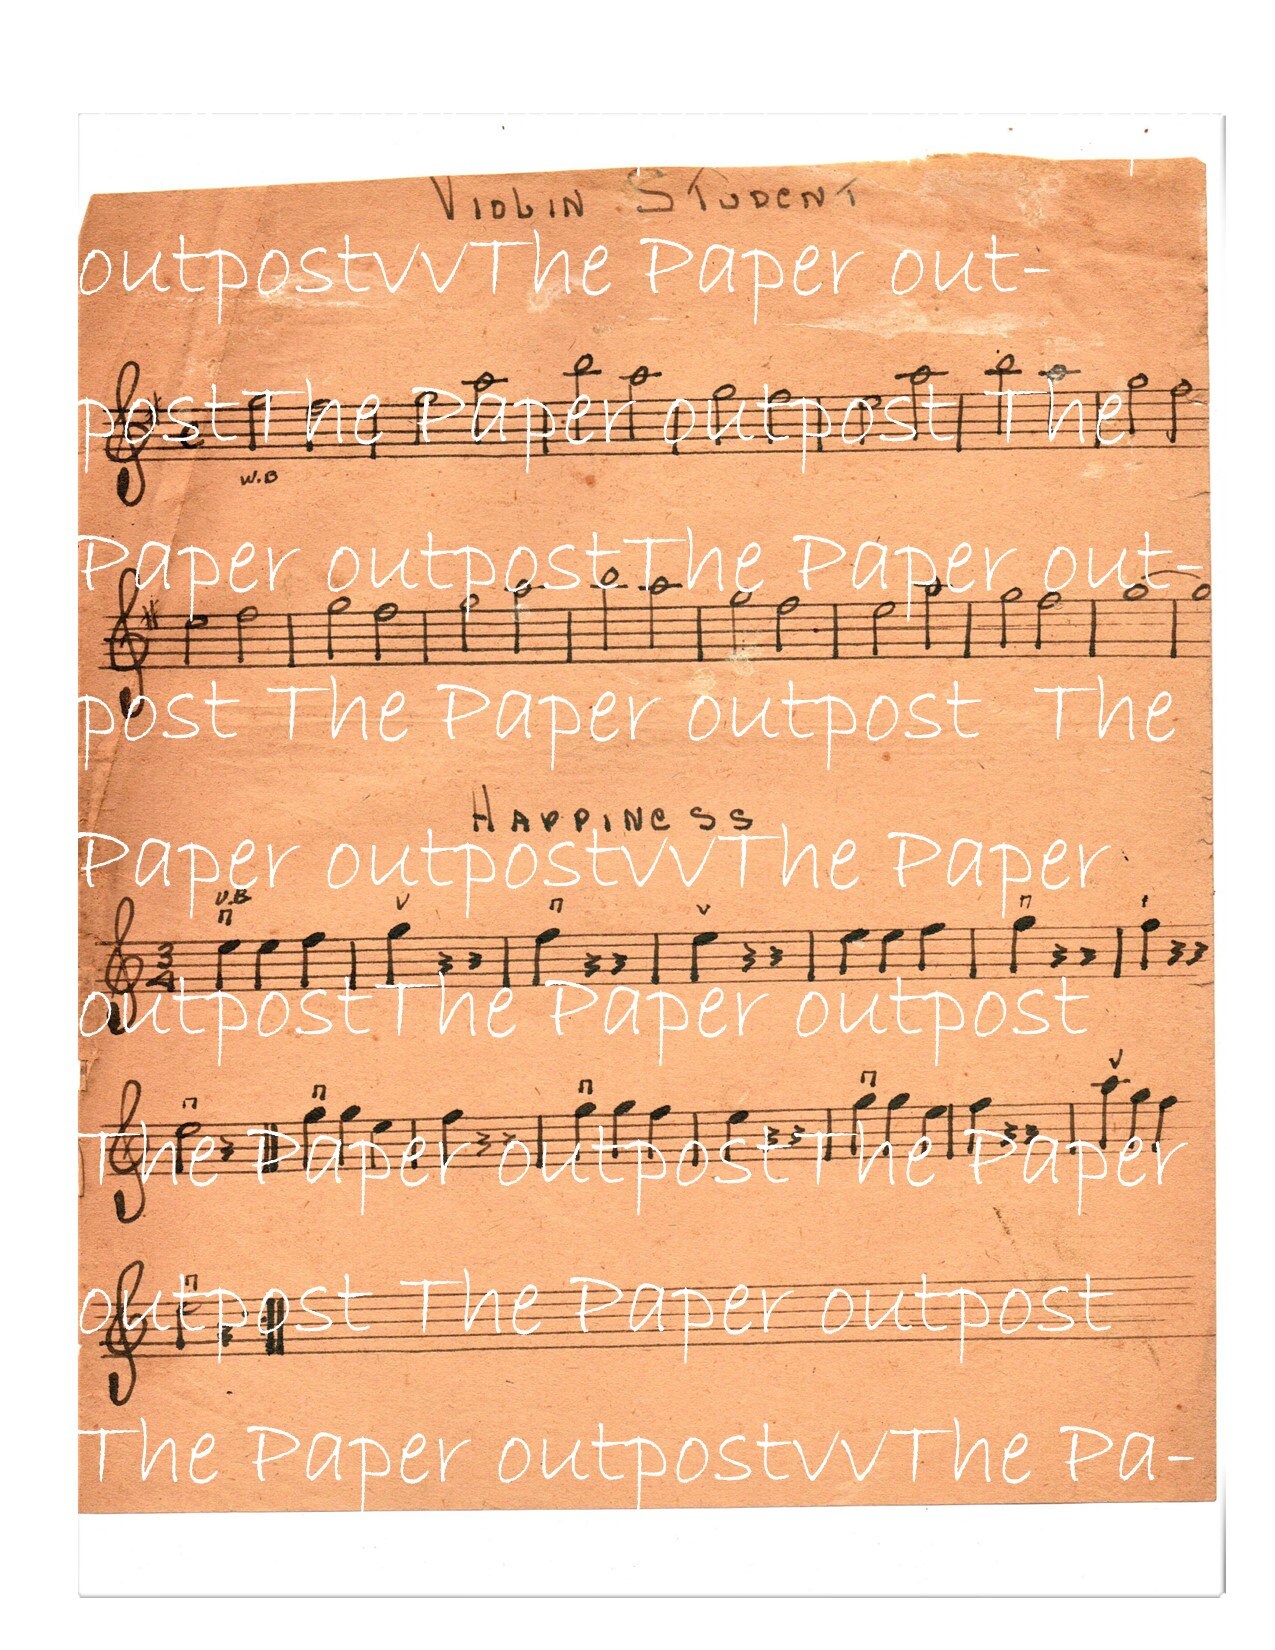 VIOLIN STUDENT
outpostvvThe Paper out-
postThe Paper outpost The
W.B
Paper outpostThe Paper out-
post The Paper outpost The
HAPPINESS
Paper outpostvvThe Paper
U.B
3
4
outpostThe Paper outpost
The Paper outpostThe Paper
outpost The Paper outpost
The Paper outpostvvThe Pa-